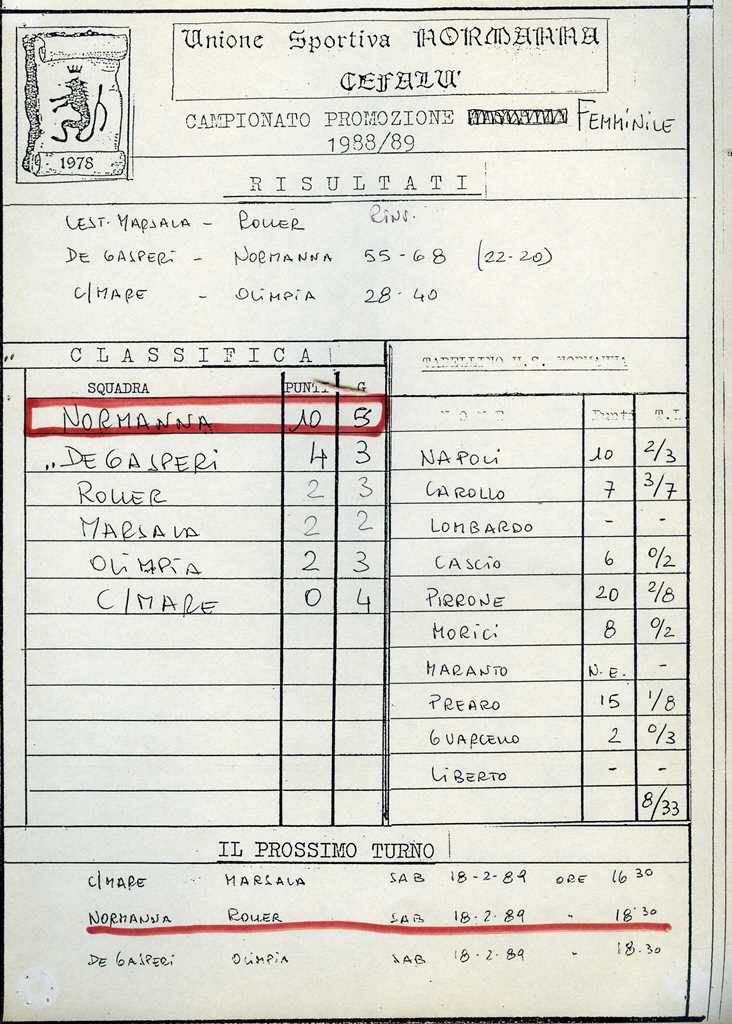 Unione Sportiva NORMANNA
CEFALU'
CAMPIONATO PROMOZIONE FEMMINILE
1988/89
1978
RISULTATI
LEST. MARSALA - ROLLER RINV.
DE GASPERI - NORMANNA 55-68 (22-20)
C/MARE - OLIMPIA 28-40
CLASSIFICA
SQUADRA PUNTI G
NORMANNA 10 5
DE GASPERI 4 3
ROLLER 2 3
MARSALA 2 2
OLIMPIA 2 3
C/MARE 0 4
TABELLINO U.S. NORMANNA
NOME Punti T.L
NAPOLI 10 2/3
CAROLLO 7 3/7
LOMBARDO - -
CASCIO 6 0/2
PIRRONE 20 2/8
MORICI 8 0/2
MARANTO N.E. -
PREARO 15 1/8
GUARCELLO 2 0/3
LIBERTO - -
8/33
IL PROSSIMO TURNO
C/MARE MARSALA SAB 18-2-89 ORE 16 30
NORMANNA ROLLER SAB 18-2-89 " 18.30
DE GASPERI OLIMPIA SAB 18-2-89 " 18.30